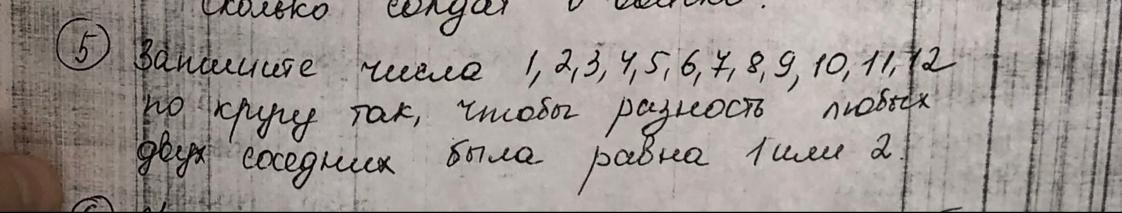 сколько солдат в
5 Запишите числа 1, 2, 3, 4, 5, 6, 7, 8, 9, 10, 11, 12
по кругу так, чтобы разность любых
двух соседних была равна 1 или 2.